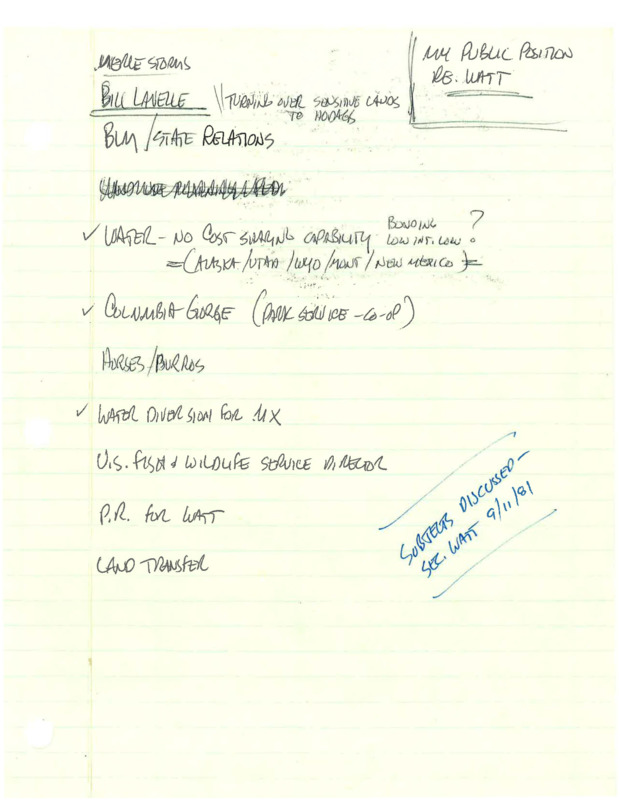 MY PUBLIC POSITION
RE. WATT
MERLE STORMS
BILL LAVELLE \\ TURNING OVER SENSITIVE LANDS
TO HODAGS
BLM / STATE RELATIONS
✓ WATER - NO COST SHARING CAPABILITY BONDING
LOW INT. LOW ?
=(ALASKA / UTAH / WYO / MONT / NEW MEXICO)=
✓ COLUMBIA GORGE (PARK SERVICE - CO-OP)
HORSES / BURROS
✓ WATER DIVERSION FOR MX
U.S. FISH & WILDLIFE SERVICE DIRECTOR
P.R. FOR WATT
LAND TRANSFER
SUBJECTS DISCUSSED -
SEC. WATT 9/11/81